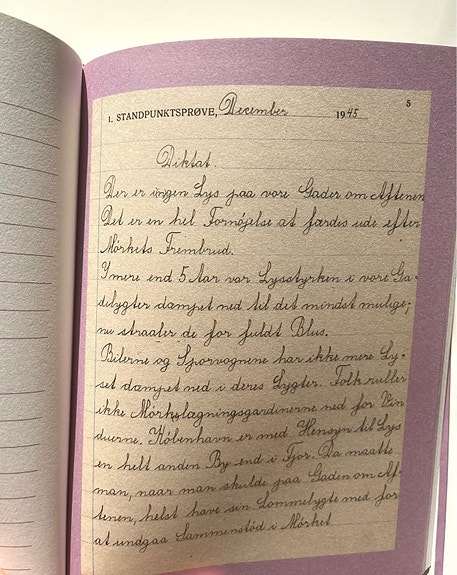 5
1. STANDPUNKTSPRØVE, December 1945
Diktat.
Der er ingen Lys paa vore Gader om Aftenen
Det er en hel Fornöjelse at færdes ude efter
Mörkets Frembrud.
I mere end 5 Aar var Lysstyrken i vore Ga-
delygter dampet ned til det mindst mulige;
nu straaler de for fuldt Blus.
Bilerne og Sporvognene har ikke mere Ly-
set dampet ned i deres Lygter. Folk ruller
ikke Mörklægningsgardinerne ned for Vin
duerne. Köbenhavn er med Hensyn til Lys
en helt anden By end i Fjor. Da maatte
man, naar man skulde paa Gaden om Af-
tenen, helst have sin Lommelygte med for
at undgaa Sammenstöd i Mörket